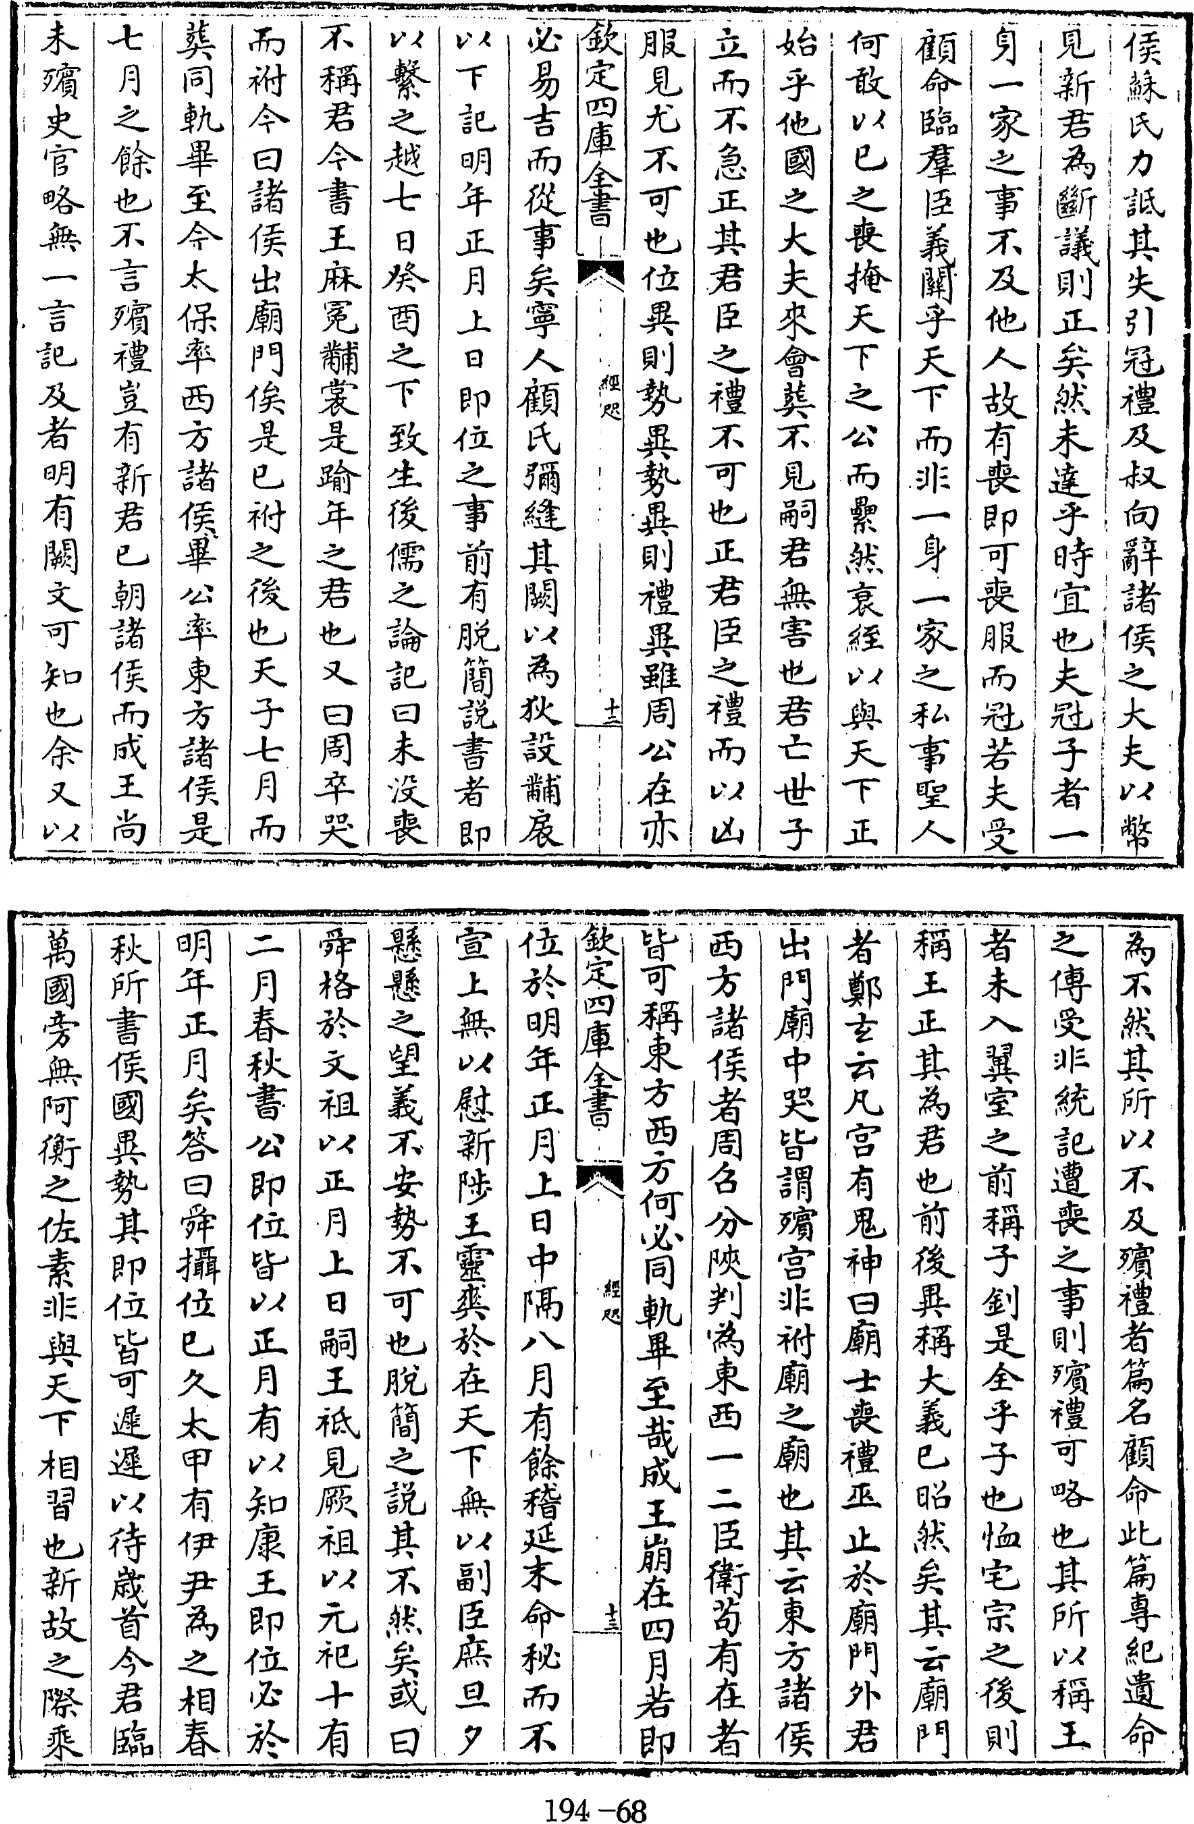 侯蘇氏力詆其失引冠禮及叔向辭諸侯之大夫以幣
見新君為斷議則正矣然未達乎時宜也夫冠子者一
身一家之事不及他人故有喪即可喪服而冠若夫受
顧命臨羣臣義關乎天下而非一身一家之私事聖人
何敢以已之喪掩天下之公而纍然衰絰以與天下正
始乎他國之大夫來會葬不見嗣君無害也君亡世子
立而不急正其君臣之禮不可也正君臣之禮而以凶
服見尤不可也位異則勢異勢異則禮異雖周公在亦
欽定四庫全書
經咫
十三
必易吉而從事矣寧人顧氏彌縫其闕以為狄設黼扆
以下記明年正月上日即位之事前有脱簡説書者即
以繫之越七日癸酉之下致生後儒之論記曰未沒喪
不稱君今書王麻冕黼裳是踰年之君也又曰周卒哭
而祔今曰諸侯出廟門俟是已祔之後也天子七月而
葬同軌畢至今太保率西方諸侯畢公率東方諸侯是
七月之餘也不言殯禮豈有新君已朝諸侯而成王尚
未殯史官略無一言記及者明有闕文可知也余又以
為不然其所以不及殯禮者篇名顧命此篇專紀遺命
之傳受非統記遭喪之事則殯禮可略也其所以稱王
者未入翼室之前稱子釗是全乎子也恤宅宗之後則
稱王正其為君也前後異稱大義已昭然矣其云廟門
者鄭玄云凡宮有鬼神曰廟士喪禮巫止於廟門外君
出門廟中哭皆謂殯宫非祔廟之廟也其云東方諸侯
西方諸侯者周召分陝判為東西一二臣衛苟有在者
皆可稱東方西方何必同軌畢至哉成王崩在四月若即
欽定四庫全書
經咫
十三
位於明年正月上日中隔八月有餘稽延末命秘而不
宣上無以慰新陟王靈爽於在天下無以副臣庶旦夕
懸懸之望義不安勢不可也脱簡之説其不然矣或曰
舜格於文祖以正月上日嗣王祗見厥祖以元祀十有
二月春秋書公即位皆以正月有以知康王即位必於
明年正月矣答曰舜攝位已久太甲有伊尹為之相春
秋所書侯國異勢其即位皆可遲遲以待歳首今君臨
萬國旁無阿衡之佐素非與天下相習也新故之際乘
194-68